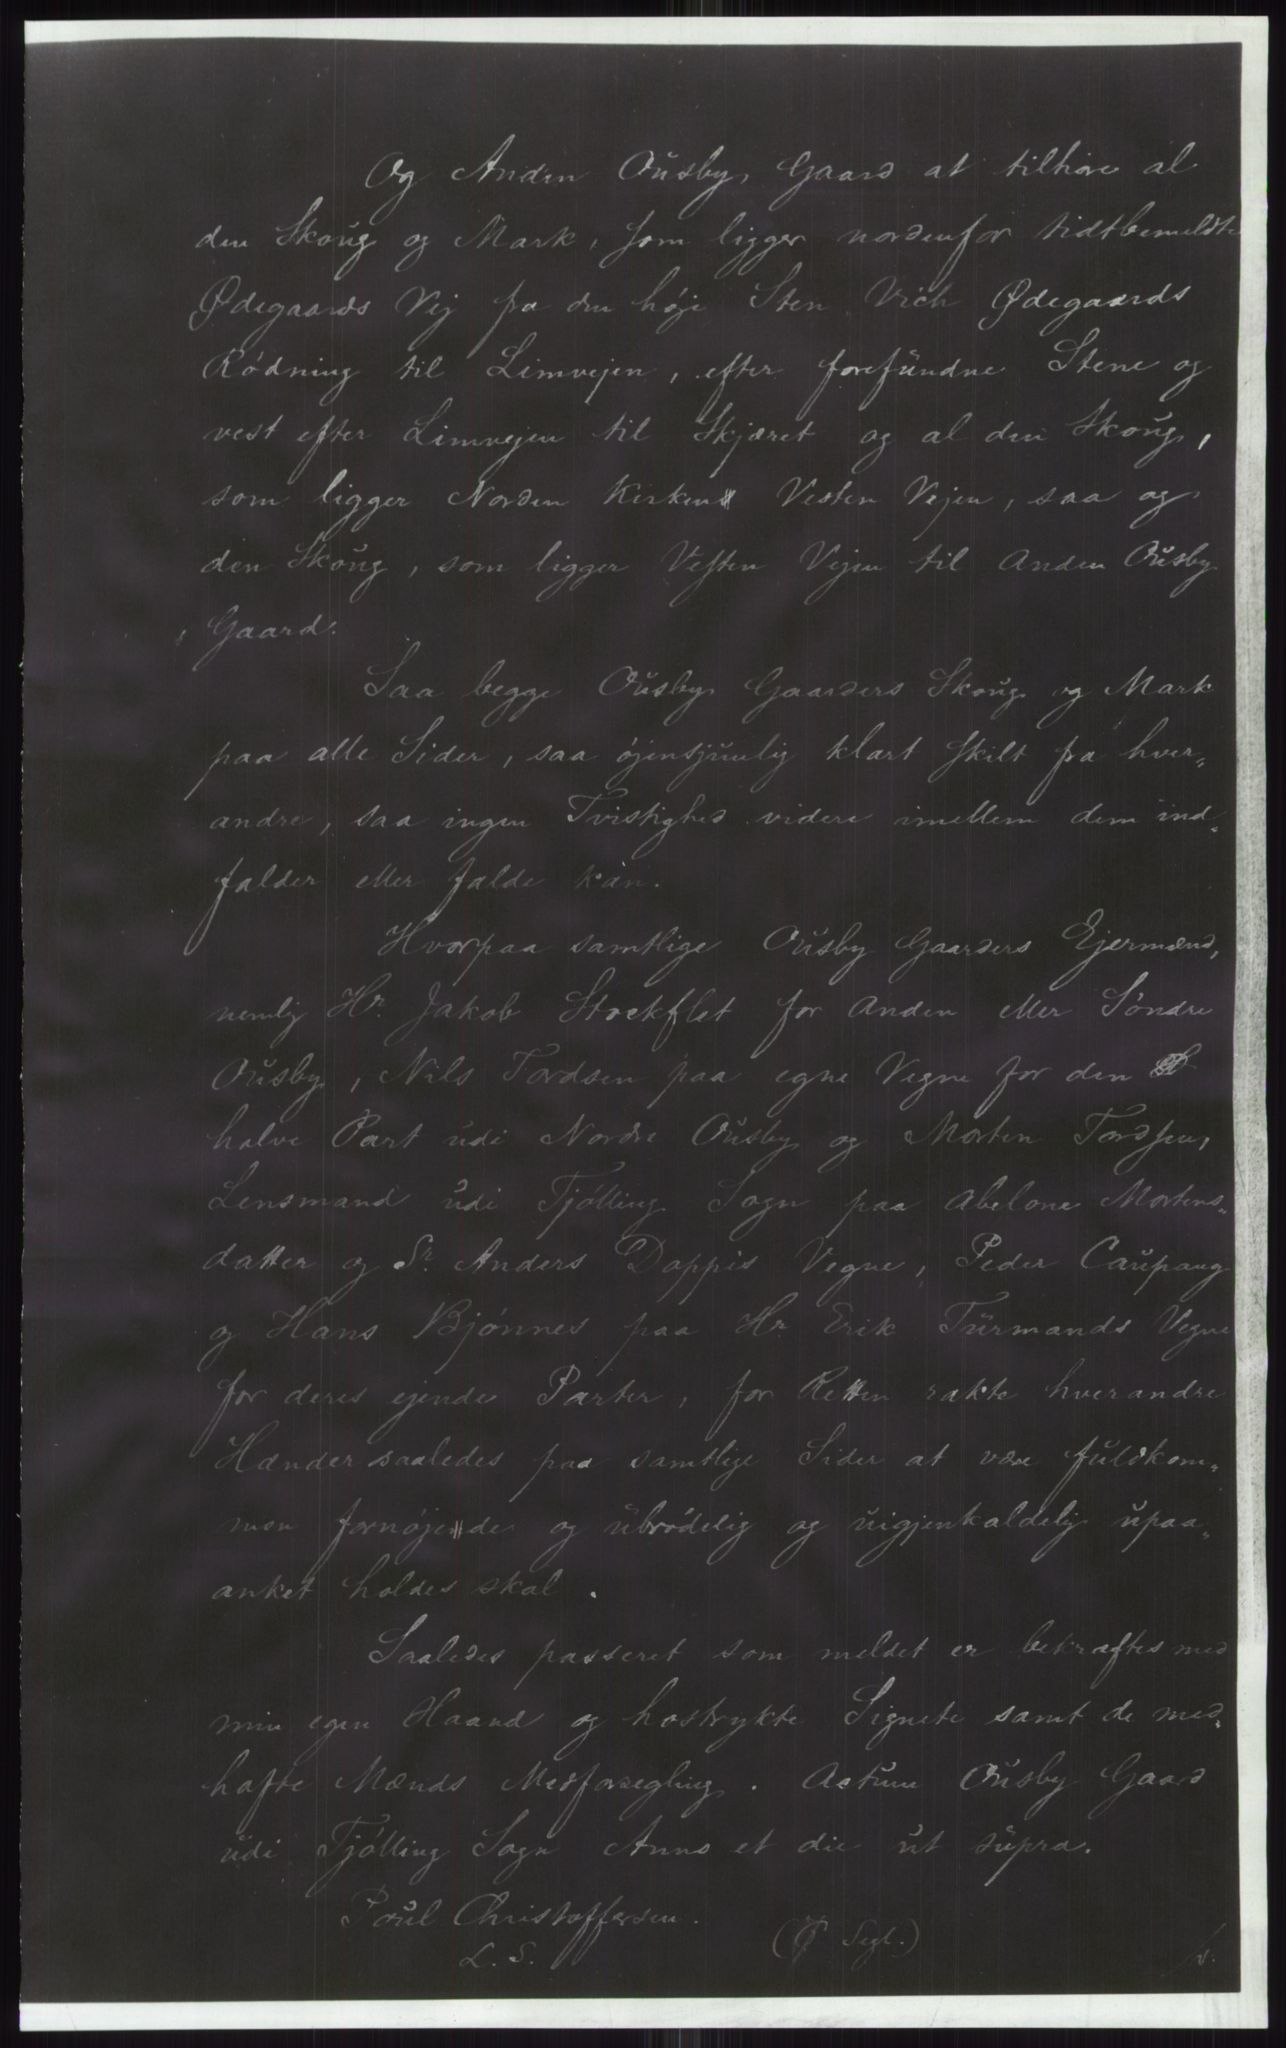 Og Anden Ousby Gaard at tilhøre al
den Skoug og Mark, som ligger nordenfor tidtbemeldte
Ødegaards Vej fra den høje Sten Vich Ødegaards
Rødning til Limvejen, efter forefundne Stene og
vest efter Limvejen til Skjæret og al den Skoug,
som ligger Norden Kirken Vesten Vejen, saa og
den Skoug, som ligger Vesten Vejen til Anden Ousby
Gaard.
Saa begge Ousby Gaarders Skoug og Mark
paa alle Sider, saa øjensjunlig klart skilt fra hver„
andre, saa ingen Tvistighed videre imellem dem ind„
falder eller falde kan.
Hvorpaa samtlige Ousby Gaarders Ejermænd,
nemlig Hr. Jakob Stockflet for Anden eller Søndre
Ousby, Nils Tordsen paa egne Vegne for den
halve Part udi Nordre Ousby og Morten Tordsen,
Lensmand udi Tjølling Sogn paa Abelone Mortens„
datter og Sr. Anders Doppis Vegne, Peder Caupang
og Hans Bjønnes paa Hr. Erik Turmands Vegne
for deres ejende Parter, for Retten rakte hverandre
Hænder saaledes paa samtlige Sider at være fuldkom„
men fornøjede og ubrødelig og uigjenkaldelig upaa„
anket holdes skal.
Saaledes passeret som meldet er bekræftes med
min egen Haand og hostrykte Signete samt de med„
hafte Mænds Medforsegling. Actum Ousby Gaard
udi Tjølling Sogn Anno et die ut supra.
Poul Christoffersen.
L. S. (Segl.)